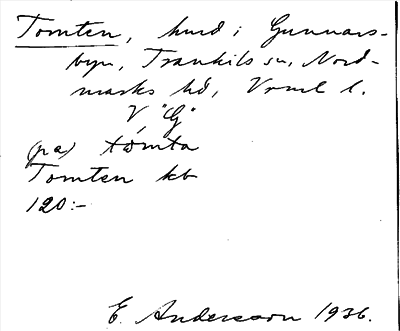 Tomten, hmd i Gunnars-
byn, Trankils sn, Nord-
marks hd, Vrml l.
V, "G"
(pa) tòmta
Tomten kb
120:-
E. Andersson 1936.